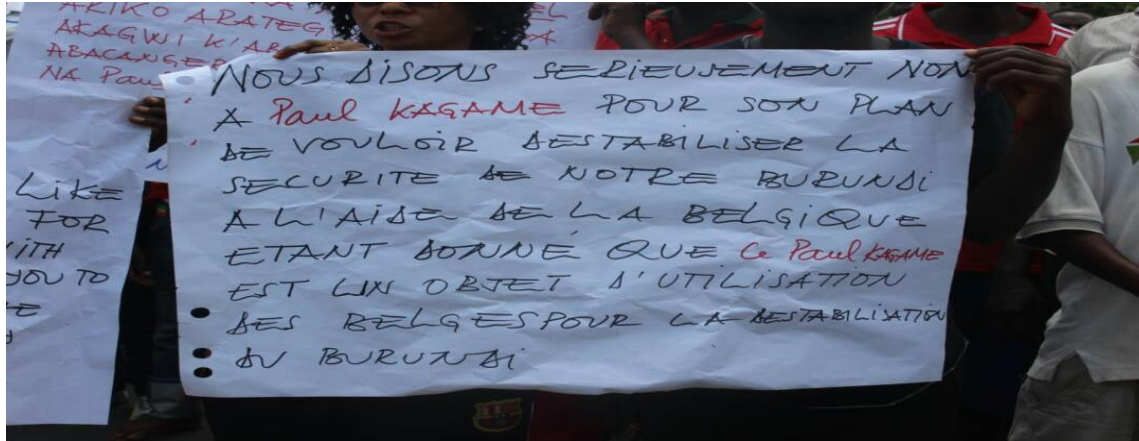 ARIKO ARATEG
AKAGWI K'AB
ABACANGER
NA Paul
NOUS DISONS SERIEUSEMENT NON
A Paul KAGAME POUR SON PLAN
DE VOULOIR DESTABILISER LA
SECURITE DE NOTRE BURUNDI
A L'AIDE DE LA BELGIQUE
ETANT DONNÉ QUE Ce Paul KAGAME
EST UN OBJET D'UTILISATION
DES BELGES POUR LA DESTABILISATION
DU BURUNDI
LIKE
FOR
WITH
YOU TO